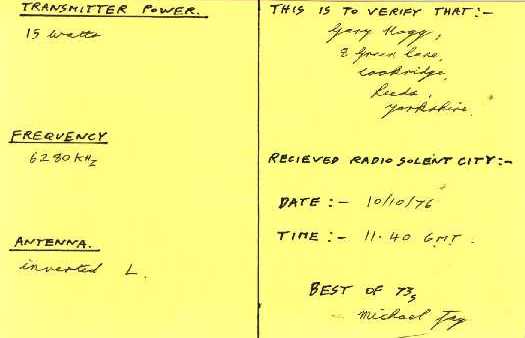 TRANSMITTER POWER.
15 watts
FREQUENCY
6280 KHz
ANTENNA.
inverted L.
THIS IS TO VERIFY THAT:-
Gary Hogg,
2 Green Lane,
Cookridge,
Leeds,
Yorkshire.
RECIEVED RADIO SOLENT CITY:-
DATE:- 10/10/76
TIME:- 11.40 GMT.
BEST OF 73s
Michael